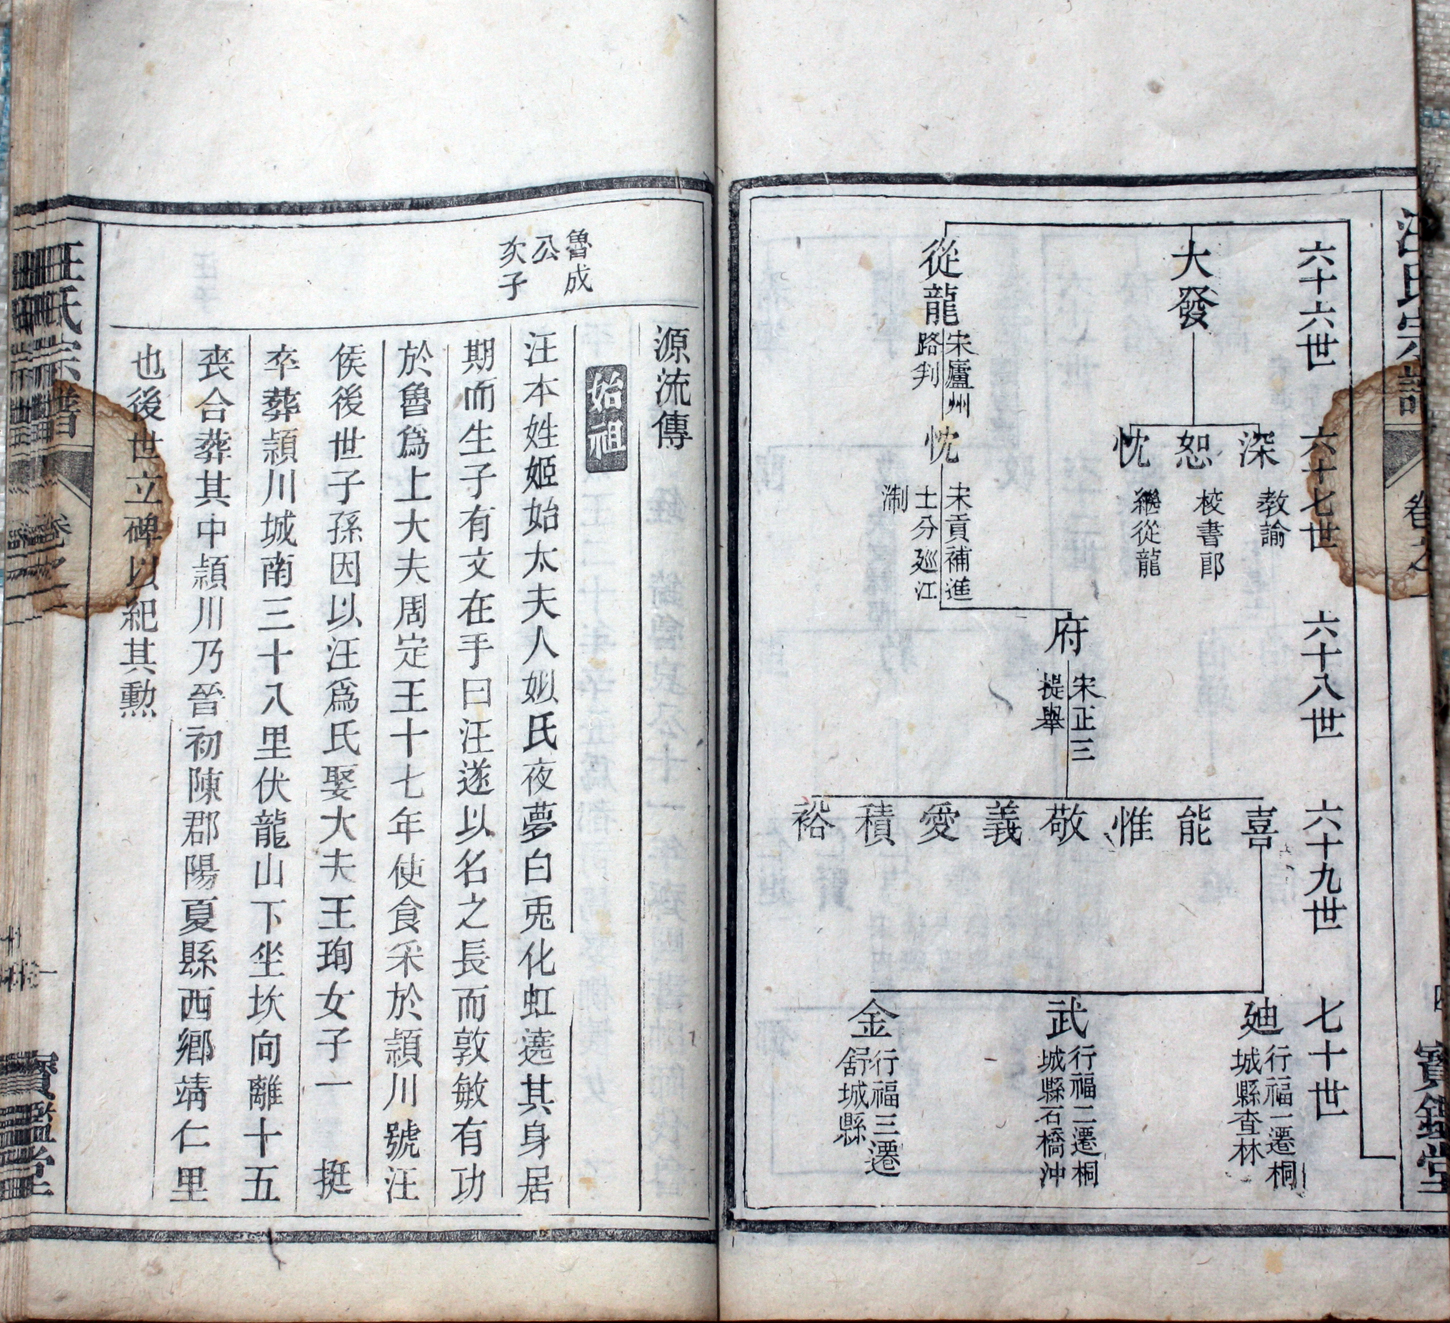 汪氏宗譜
卷之
寶鑑堂
六十六世
大發
從龍
宋廬州
路判
六十七世
深
教諭
恕
校書郎
忱
繼從龍
忱
宋貢補進
士分廵江
淛
六十八世
府
宋正三
提舉
六十九世
喜
能
惟
敬
義
愛
積
裕
七十世
廸
行福一遷桐
城縣查林
武
行福二遷桐
城縣石橋沖
金
行福三遷
舒城縣
魯成
公
亥子
源流傳
始祖
汪本姓姬始太夫人姒氏夜夢白兎化虹遶其身居
期而生子有文在手曰汪遂以名之長而敦敏有功
於魯爲上大夫周定王十七年使食采於頴川號汪
侯後世子孫因以汪爲氏娶大夫王珣女子一 挺
卒葬頴川城南三十八里伏龍山下坐坎向離十五
丧合葬其中頴川乃晉初陳郡陽夏縣西鄉靖仁里
也後世立碑以紀其勲
汪氏宗譜
卷之一
寶鑑堂